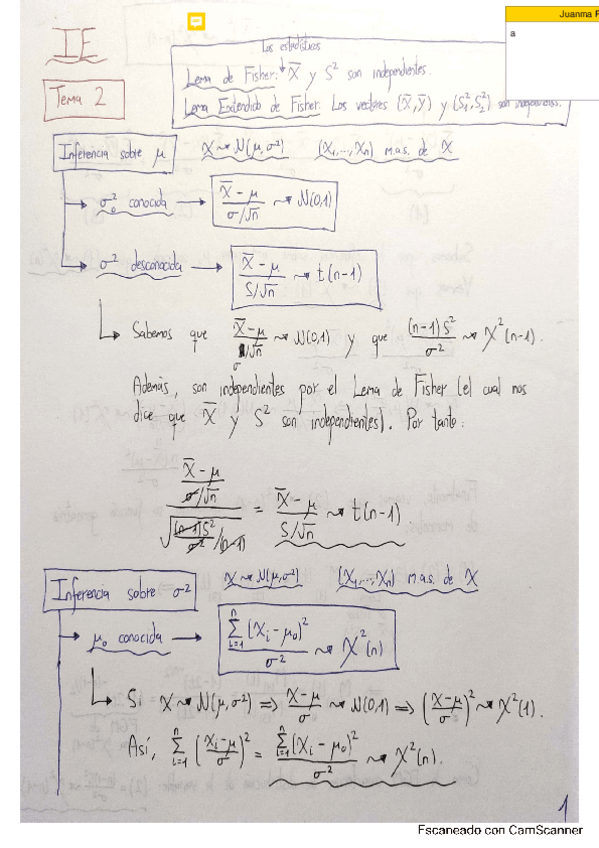 Juanma F
a
IE
Tema 2
Los estadísticos
Lema de Fisher: X̄ y S² son independientes.
Lema Extendido de Fisher: Los vectores (X̄,Ȳ) y (S₁²,S₂²) son independientes.
Inferencia sobre μ   X ⇝ N(μ,σ²)   (X₁,...,Xₙ) m.a.s. de X
→ σ₀² conocida → (X̄ - μ)/(σ/√n) ⇝ N(0,1)
→ σ² desconocida → (X̄ - μ)/(S/√n) ⇝ t(n-1)
↳ Sabemos que (X̄-μ)/(σ/√n) ⇝ N(0,1) y que (n-1)S²/σ² ⇝ χ²(n-1).
Además, son independientes por el Lema de Fisher (el cual nos
dice que X̄ y S² son independientes). Por tanto:
((X̄ - μ)/(σ/√n))/√((n-1)S²/σ²/(n-1)) = (X̄ - μ)/(S/√n) ⇝ t(n-1)
Inferencia sobre σ²   X ⇝ N(μ,σ²)   (X₁,...,Xₙ) m.a.s. de X
→ μ₀ conocida → Σᵢ₌₁ⁿ (Xᵢ - μ₀)²/σ² ⇝ χ²(n)
↳ Si X ⇝ N(μ,σ²) ⇒ (X-μ)/σ ⇝ N(0,1) ⇒ ((X-μ)/σ)² ⇝ χ²(1).
Así, Σᵢ₌₁ⁿ ((Xᵢ-μ)/σ)² = Σᵢ₌₁ⁿ (Xᵢ - μ₀)²/σ² ⇝ χ²(n).
1
Escaneado con CamScanner